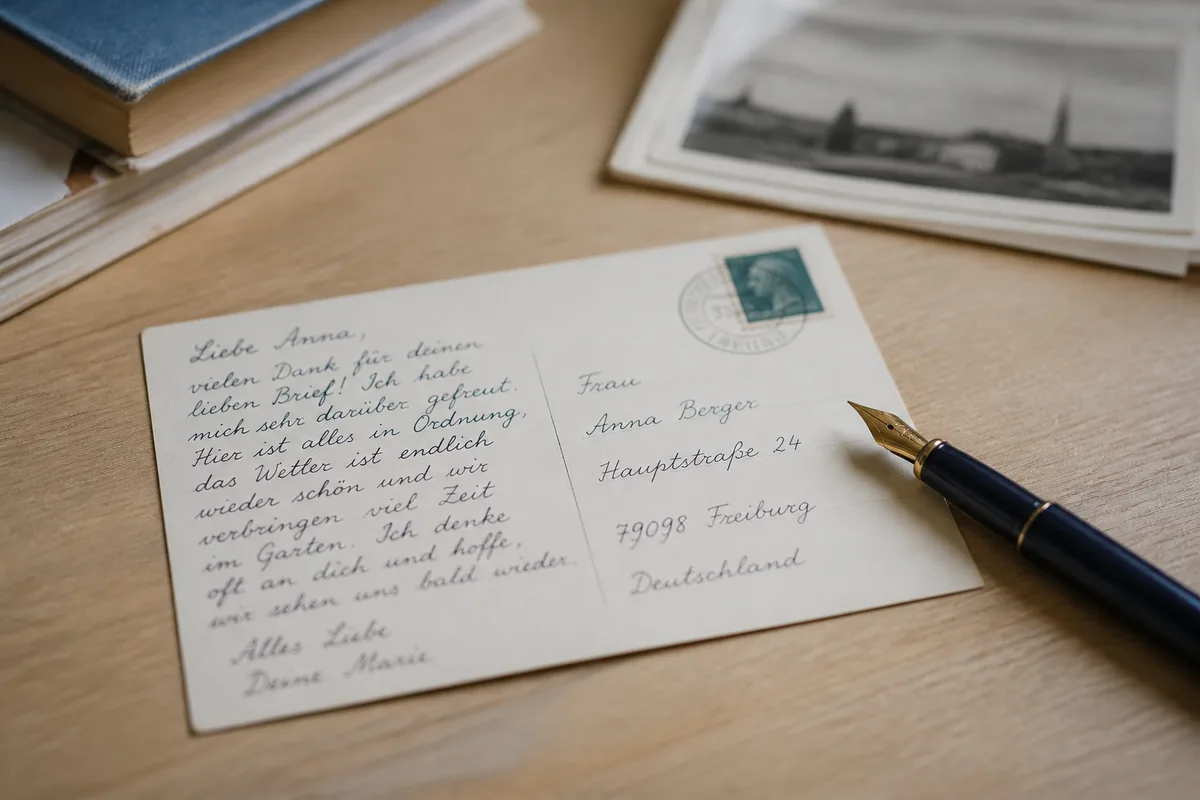 Liebe Anna,
vielen Dank für deinen
lieben Brief! Ich habe
mich sehr darüber gefreut.
Hier ist alles in Ordnung,
das Wetter ist endlich
wieder schön und wir
verbringen viel Zeit
im Garten. Ich denke
oft an dich und hoffe,
wir sehen uns bald wieder.
Alles Liebe
Deine Marie
Frau
Anna Berger
Hauptstraße 24
79098 Freiburg
Deutschland